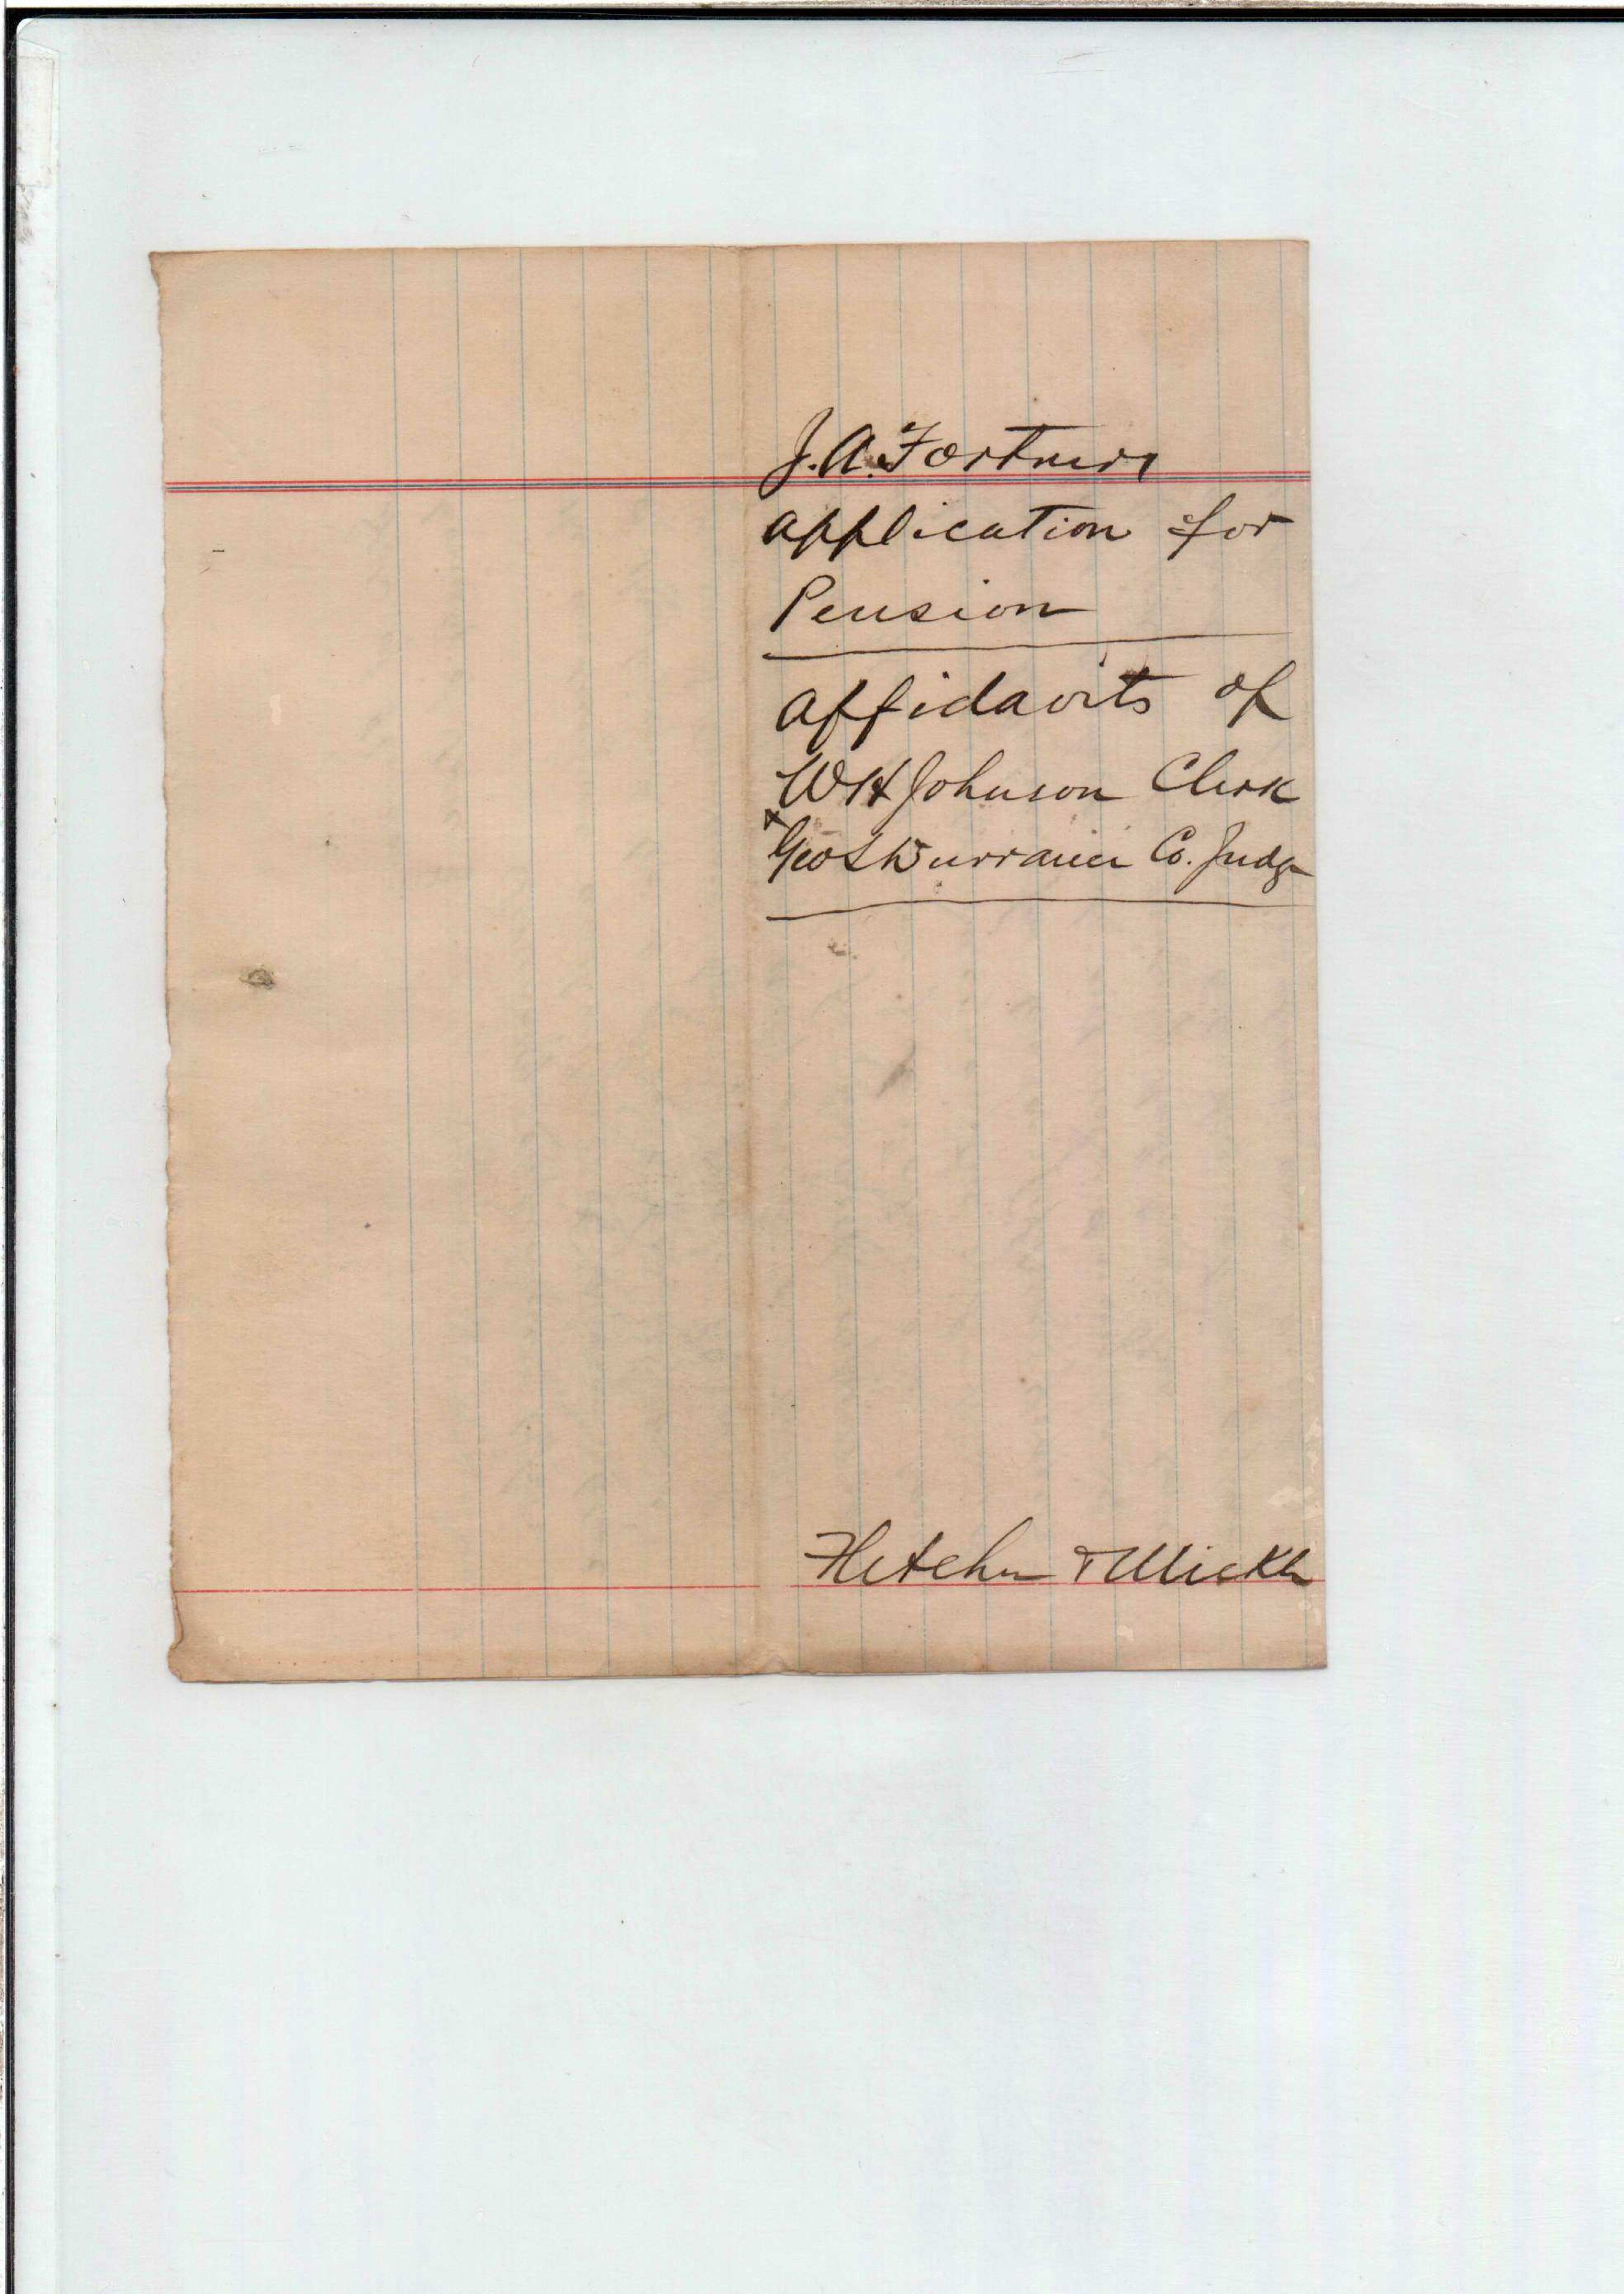 J. A. Fortners
application for
Pension
affidavits of
W H Johnson Clerk
&
Geo L Co. Judge
Fletcher & Mickle